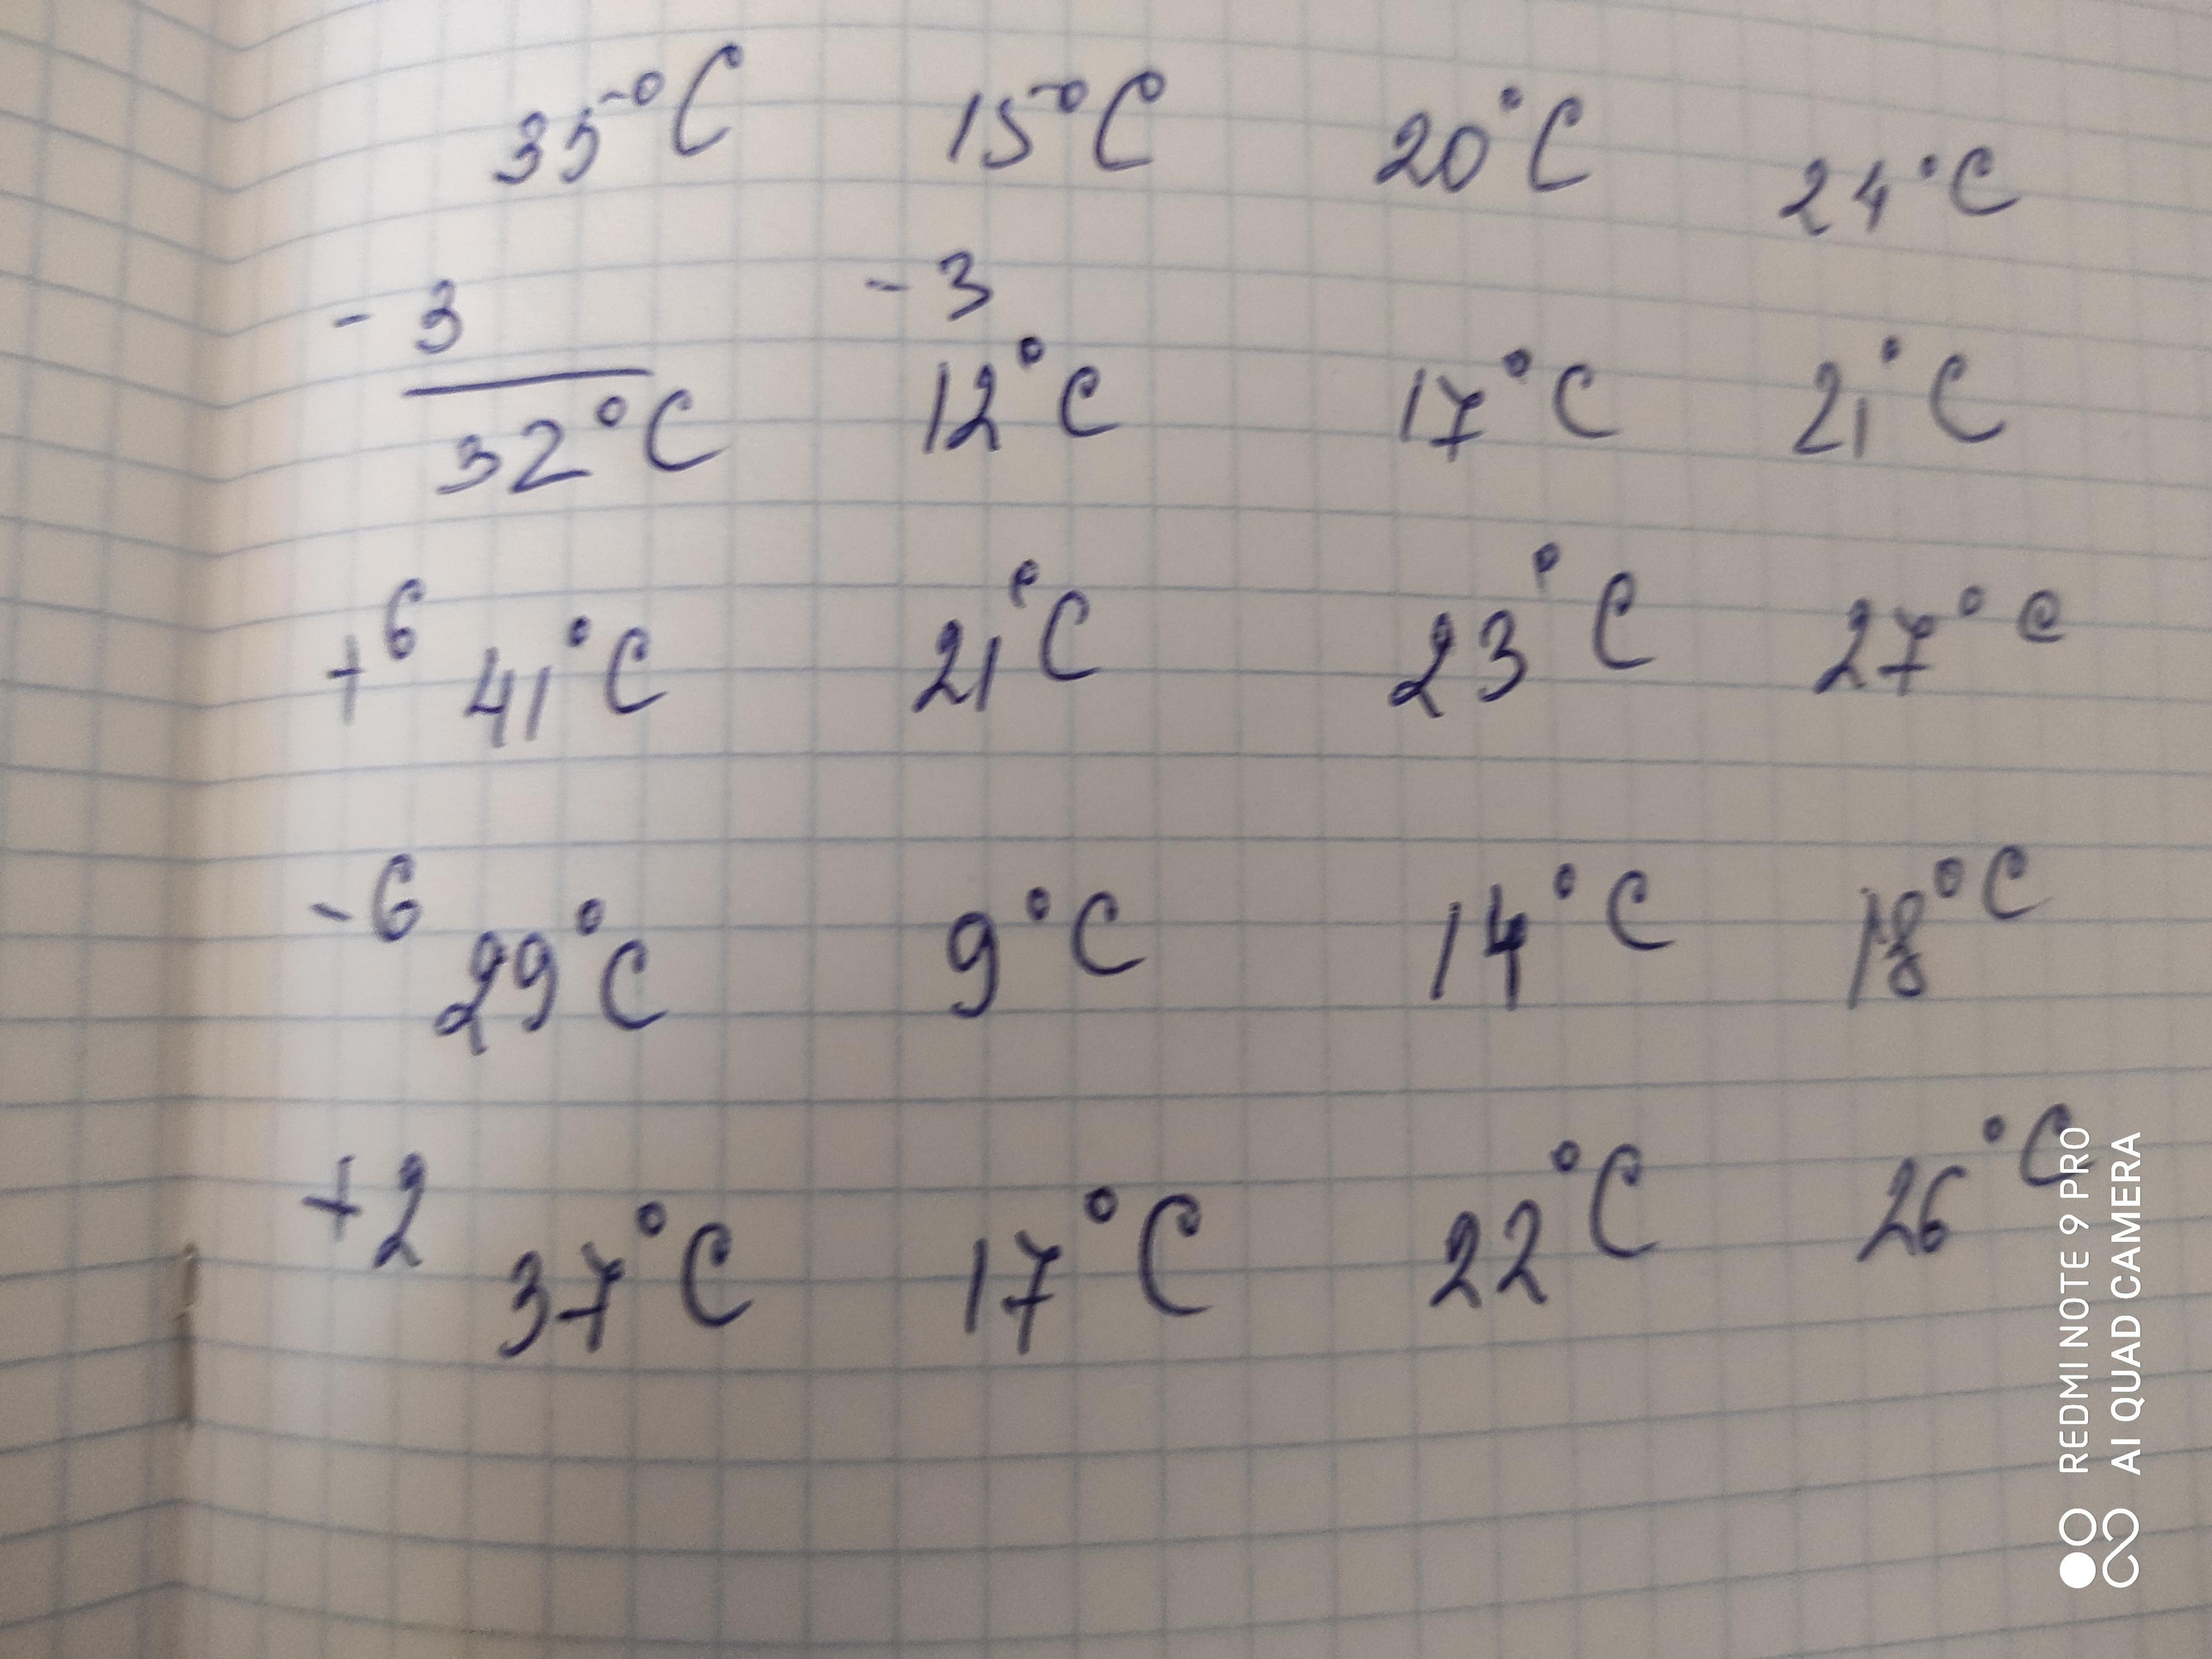 35°C 15°C 20°C 24°C
- 3 - 3
32°C 12°C 17°C 21°C
+6 41°C 21°C 23°C 27°C
-6 29°C 9°C 14°C 18°C
+2 37°C 17°C 22°C 26°C
REDMI NOTE 9 PRO
AI QUAD CAMERA